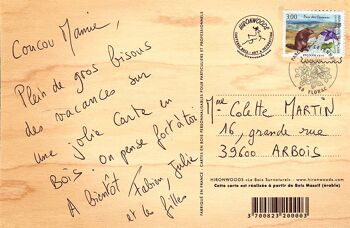 Coucou Mamie,
Plein de gros bisous
des vacances sur
une jolie carte en
Bois. on pense fort à toi
A bientôt Fabien, Julie
et les filles
CARTES EN BOIS PERSONNALISABLES POUR PARTICULIERS ET PROFESSIONNELS
HIRONWOODS
3,00
48 FLORAC
Mme Colette MARTIN
16, grande rue
39600 ARBOIS
HIRONWOODS «Le Bois Surnaturel» www.hironwoods.com
Cette carte est réalisée à partir de Bois Massif (érable)
3 700823 200003